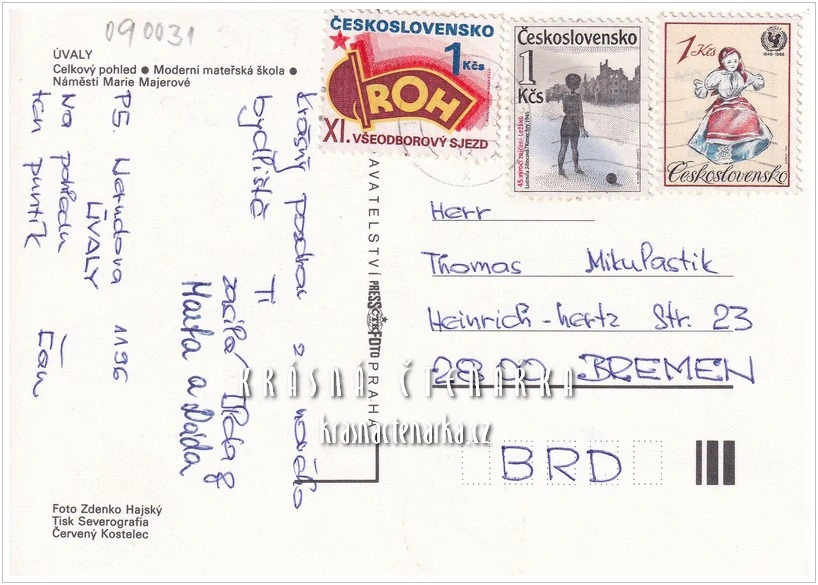 090031
ÚVALY
Celkový pohled ● Moderní mateřská škola ●
Náměstí Marie Majerové
ČESKOSLOVENSKO
1 Kčs
ROH
XI. VŠEODBOROVÝ SJEZD
Československo
1
Kčs
45. výročí zničení Ležáků
1 Kčs
1946-1986
Československo
Krásný pozdrav z našeho
bydliště Ti
zasílá
Marta a Dáda
PS. Nerudova 1196
ÚVALY
Na pohledu
ten puntík
VATELSTVÍ PRESSFOTO PRAHA
Herr
Thomas Mikulastik
Heinrich-hertz Str. 23
2800 BREMEN
BRD
KRÁSNÁ ČTENÁRKA
krasnactenarka.cz
Foto Zdenko Hajský
Tisk Severografia
Červený Kostelec